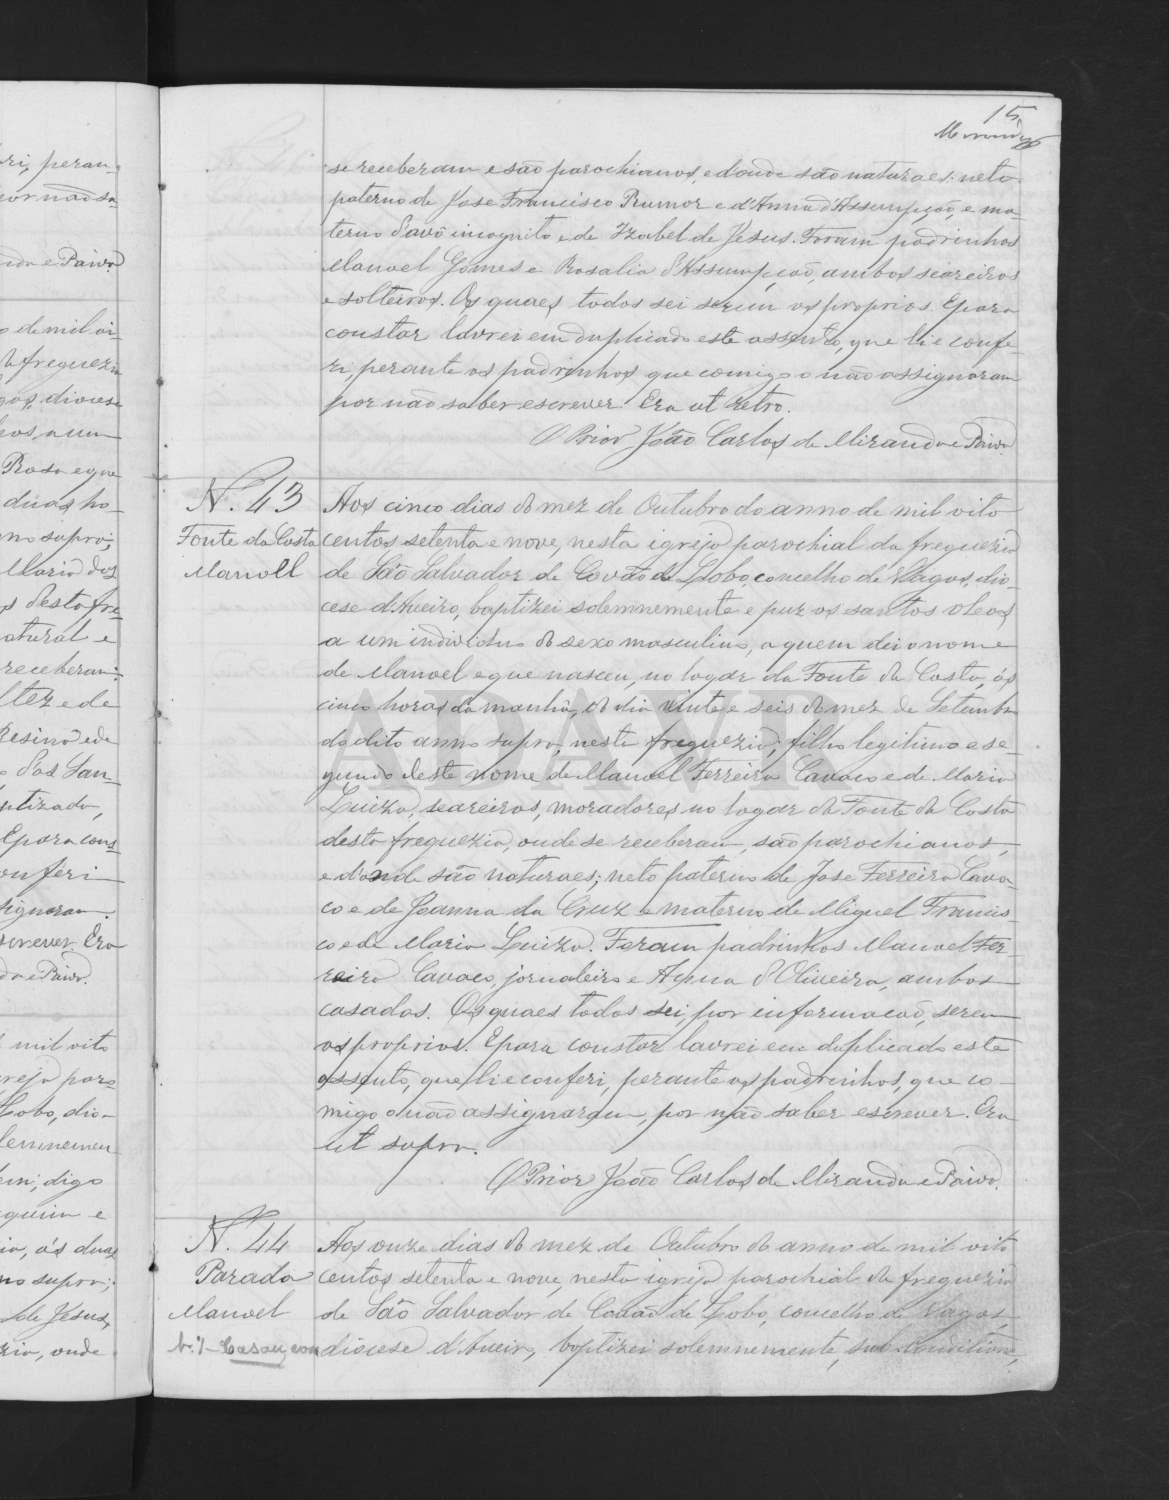 15
Miranda
se receberam e são parochianos, e donde são naturaes: neto
paterno de Jose Francisco Rumor e d'Anna d'Assumpção, e ma-
terno d'avô incognito e de Izabel de Jesus. Foram padrinhos
Manoel Gomes e Rosalia d'Assumpção, ambos seareiros
e solteiros. Os quaes todos sei serem os proprios. E para
constar lavrei em duplicado este assento, que li e confe-
ri, perante os padrinhos que comigo o não assignaram
por não saber escrever. Era ut retro.
O Prior João Carlos de Miranda e Paiva.
N. 43
Fonte da Costa
Manoel
Aos cinco dias do mez de Outubro do anno de mil oito
centos setenta e nove, nesta igreja parochial da freguezia
de São Salvador de Covão do Lobo, concelho de Vagos, dio-
cese d'Aveiro, baptizei solemnemente e puz os santos oleos
a um individuo do sexo masculino, a quem dei o nome
de Manoel e que nasceu, no logar da Fonte da Costa, ás
cinco horas da manhã, do dia vinte e seis do mez de Setembro
do dito anno supra, nesta freguezia; filho legitimo e se-
gundo deste nome de Manoel Ferreira Cavaco e de Maria
Luiza, seareiros, moradores no logar da Fonte da Costa
desta freguezia, onde se receberam, são parochianos,
e d'onde são naturaes; neto paterno de Jose Ferreira Cava-
co e de Joanna da Cruz e materno de Miguel Francis-
co e de Maria Luiza. Foram padrinhos Manoel Fer-
reira Cavaco, jornaleiro e Anna d'Oliveira, ambos
casados. Os quaes todos sei, por informação, serem
os proprios. E para constar lavrei em duplicado este
assento, que li e conferi, perante os padrinhos, que co-
migo o não assignaram, por não saber escrever. Era
ut supra.
O Prior João Carlos de Miranda e Paiva.
N. 44
Parada
Manoel
N.º 1 - Casou, com
Aos onze dias do mez de Outubro do anno de mil oito
centos setenta e nove, nesta igreja parochial da freguezia
de São Salvador de Covão do Lobo, concelho de Vagos,
diocese d'Aveiro, baptizei solemnemente, sub conditione,
ADAVR